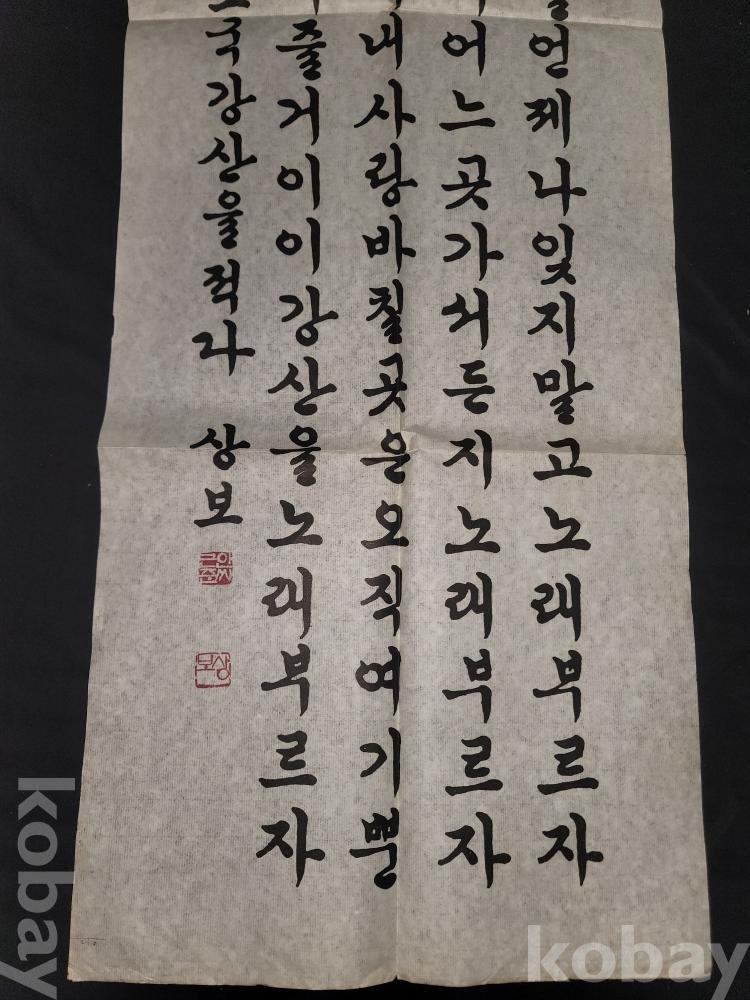 언제나잊지말고노래부르자
어느곳가서든지노래부르자
내사랑바칠곳은오직여기뿐
즐거이이강산을노래부르자
국강산을적다 상보
안씨
상보
kobay
kobay